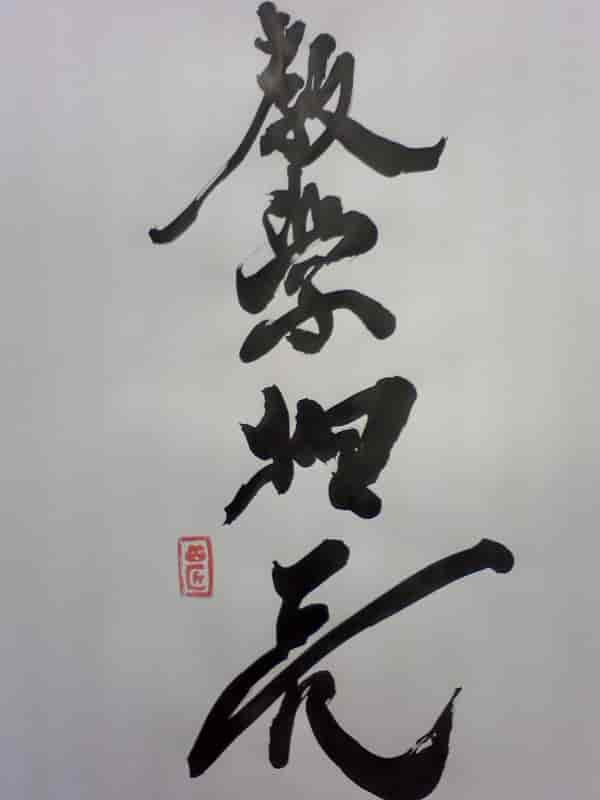 教學相長